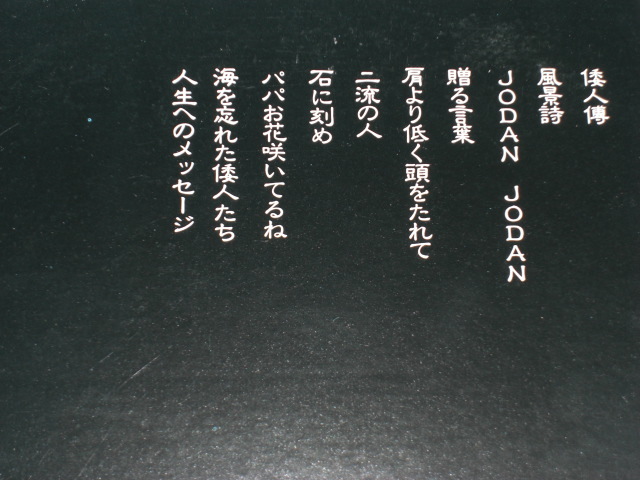 倭人傳
風景詩
JODAN JODAN
贈る言葉
肩より低く頭をたれて
二流の人
石に刻め
パパお花咲いてるね
海を忘れた倭人たち
人生へのメッセージ